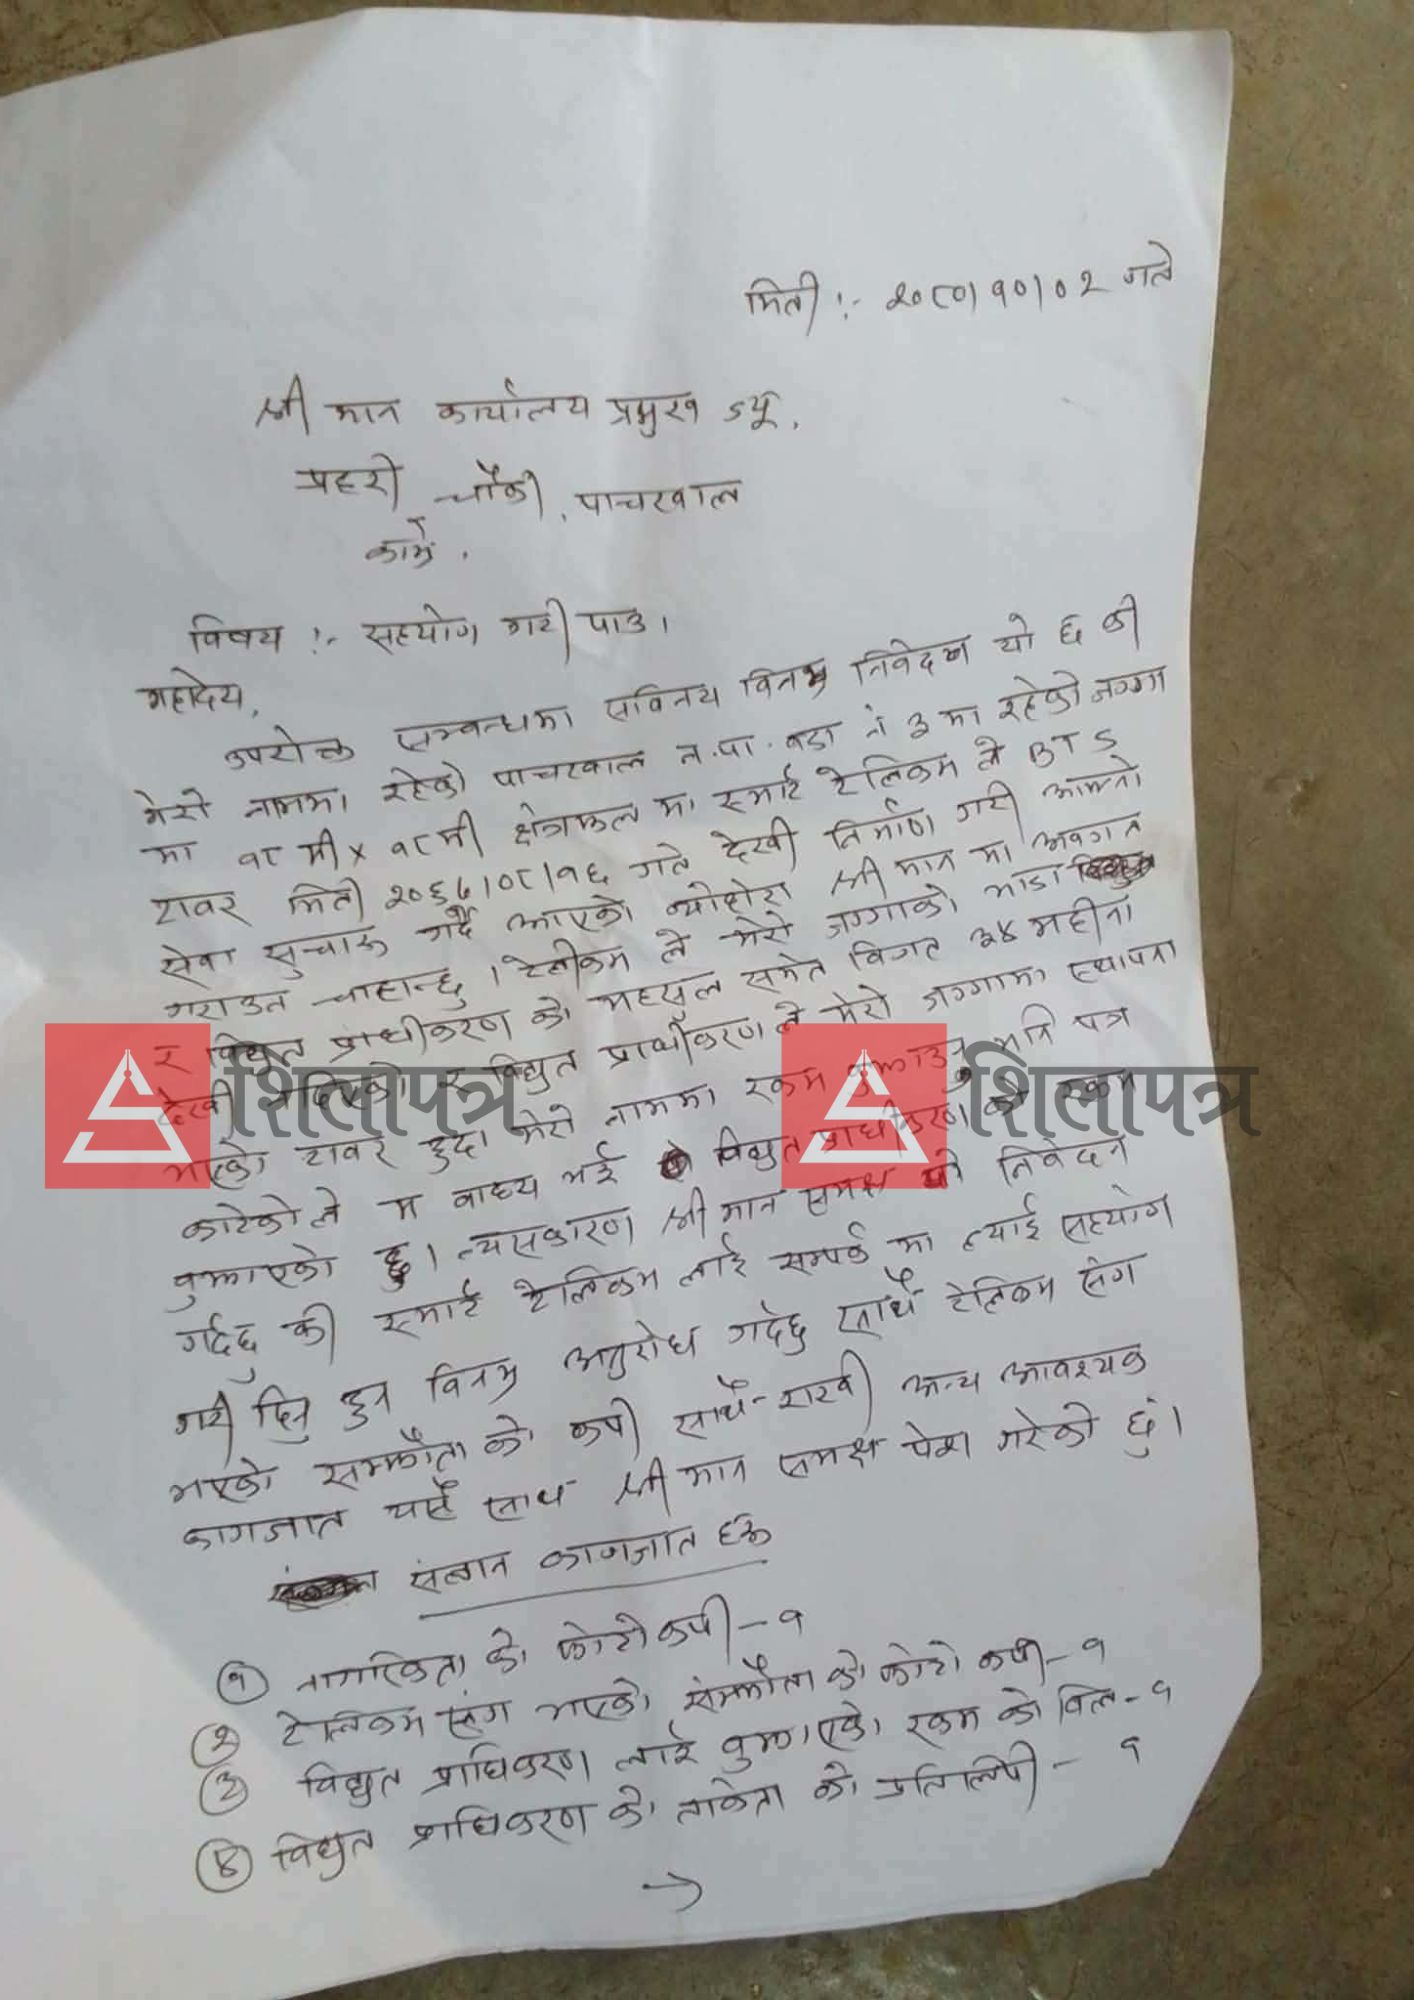 मिती :- २०८०।१०।०२ गते
श्री मान कार्यालय प्रमुख ज्यू,
प्रहरी चौकी, पाचखाल
काभ्रे ।
विषय :- सहयोग गरी पाउ ।
महोदय,
उपरोक्त सम्वन्धमा सविनय विनम्र निवेदन यो छ की
मेरो नाममा रहेको पाचखाल न.पा. वडा नं ३ मा रहेको जग्गा
मा १८ मी x १८ मी क्षेत्रफल मा स्मार्ट टेलिकम ले BTS
टावर मिती २०६७।०८।१६ गते देखी निर्माण गरी आफ्नो
सेवा सुचारु गर्दै आएको व्योहोरा श्री मान मा अवगत
गराउन चाहान्छु । टेलीकम ले मेरो जग्गाको भाडा
र विद्युत प्राधीकरण को महसुल समेत विगत ३४ महीना
देखी नदिएको र विद्युत प्राधीकरण ले मेरो जग्गामा स्थापना
भएको टावर हुदा मेरो नाममा रकम वुझाउनु भनि पत्र
काटेको ले म वाध्य भई विद्युत प्राधीकरण को रकम
वुझाएको छु । त्यसकारण श्री मान समक्ष यो निवेदन
गर्दछु की स्मार्ट टेलिकम लाई सम्पर्क मा ल्याई सहयोग
गरी दिनु हुन विनम्र अनुरोध गर्दछु साथै टेलिकम संग
भएको सम्झौता को कपी साथै राखी अन्य आवश्यक
कागजात यसै साथ श्री मान समक्ष पेश गरेको छुं ।
संलग्न कागजात हरु
१ नागरिकता को फोटो कपी - १
२ टेलिकम संग भएको संम्झौता को फोटो कपी - १
३ विद्युत प्राधिकरण लाई वुझाएको रकम को विल - १
४ विद्युत प्राधिकरण को ताकेता को प्रतिलिपी - १
→
शिलापत्र शिलापत्र